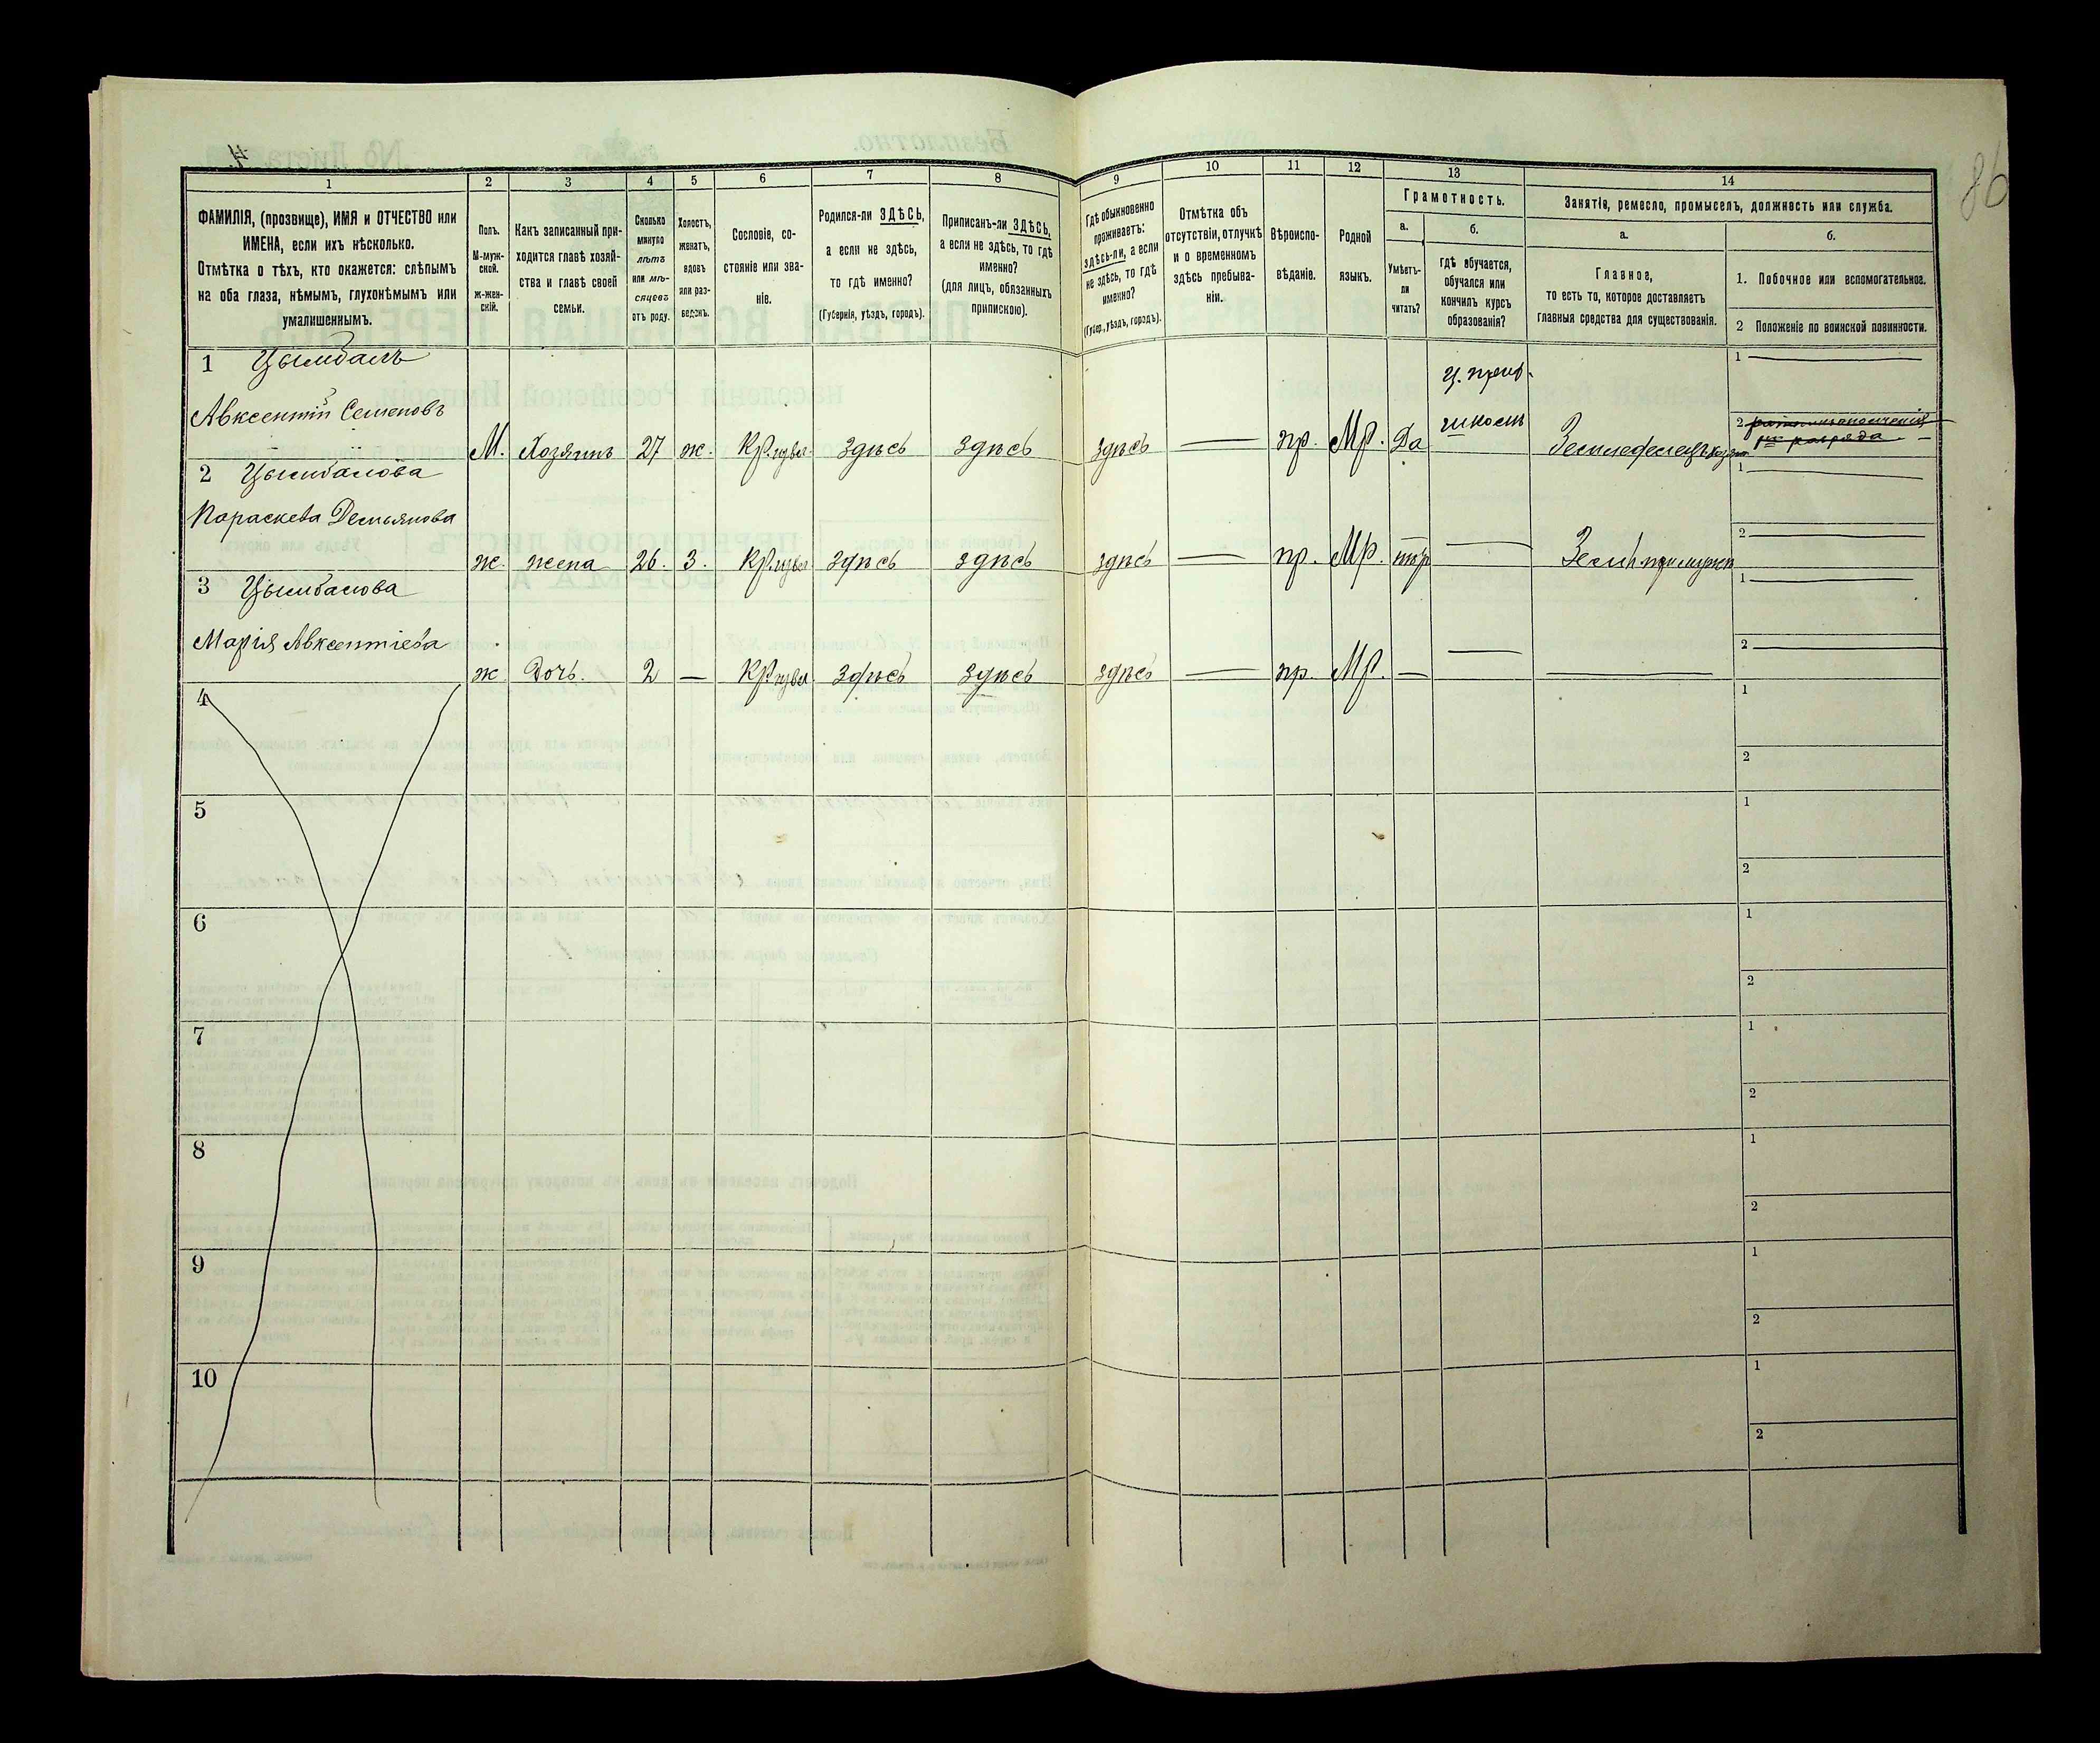 4.
86
1 2 3 4 5 6 7 8 9 10 11 12 13 14
ФАМИЛІЯ, (прозвище), ИМЯ и ОТЧЕСТВО или
ИМЕНА, если ихъ нѣсколько.
Отмѣтка о тѣхъ, кто окажется: слѣпымъ
на оба глаза, нѣмымъ, глухонѣмымъ или
умалишеннымъ.
Полъ.
М-муж-
ской.
ж-жен-
скій.
Какъ записанный при-
ходится главѣ хозяй-
ства и главѣ своей
семьи.
Сколько
минуло
лѣтъ
или мѣ-
сяцевъ
отъ роду.
Холостъ,
женатъ,
вдовъ
или раз-
веденъ.
Сословіе, со-
стояніе или зва-
ніе.
Родился-ли ЗДѢСЬ,
а если не здѣсь,
то гдѣ именно?
(Губернія, уѣздъ, городъ).
Приписанъ-ли ЗДѢСЬ,
а если не здѣсь, то гдѣ
именно?
(для лицъ, обязанныхъ
припискою).
Гдѣ обыкновенно
проживаетъ:
здѣсь-ли, а если
не здѣсь, то гдѣ
именно?
(Губер., уѣздъ, городъ).
Отмѣтка объ
отсутствіи, отлучкѣ
и о временномъ
здѣсь пребыва-
ніи.
Вѣроиспо-
вѣданіе.
Родной
языкъ.
Грамотность.
а.
Умѣетъ-
ли
читать?
б.
гдѣ обучается,
обучался или
кончилъ курсъ
образованія?
Занятіе, ремесло, промыселъ, должность или служба.
а.
Главное,
то есть то, которое доставляетъ
главныя средства для существованія.
б.
1. Побочное или вспомогательное.
2 Положеніе по воинской повинности.
1 Цымбалъ
Авксентій Семеновъ
М. Хозяинъ 27 ж. Здѣсь Здѣсь здѣсь — пр. Мр. Да
школь
1 —
2
2 Цымбалова
Параскева Демьянова
ж. жена 26. З. Здѣсь здѣсь здѣсь — пр. Мр. —
1 —
2 —
3 Цымбалова
Марія Авксентіева
ж Дочь. 2 — Здѣсь Здѣсь здѣсь — пр. Мр. — — —
1 —
2 —
4
1
2
5
1
2
6
1
2
7
1
2
8
1
2
9
1
2
10
1
2